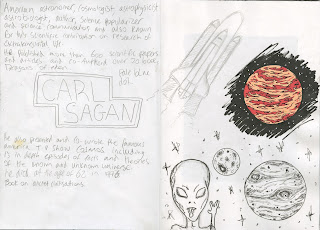 American astronomer, cosmologist, astrophysicist
astrobiologist, author, science populariser
and science communicator and also known
for his scientific research of
extraterrestrial life.
He published more than 600 scientific papers
and articles, and co-authored over 20 books,
Dragons of Eden
Pale blue
dot.
CARL
SAGAN
He presented and co wrote the famous
T.V show Cosmos including
13 in depth episodes of and theories
of the known and unknown universe
He died at the age of 62 in 1996